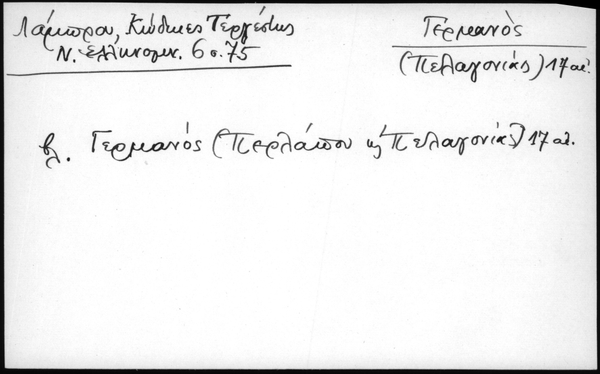 Λάμπρου, Κώδικες Τεργέστης
Ν. Ελληνομν. 6 σ. 75
Γερμανὸς
(Πελαγονίας) 17 αἰ.
βλ. Γερμανός (Περλάπου κ' Πελαγονίας) 17 αἰ.